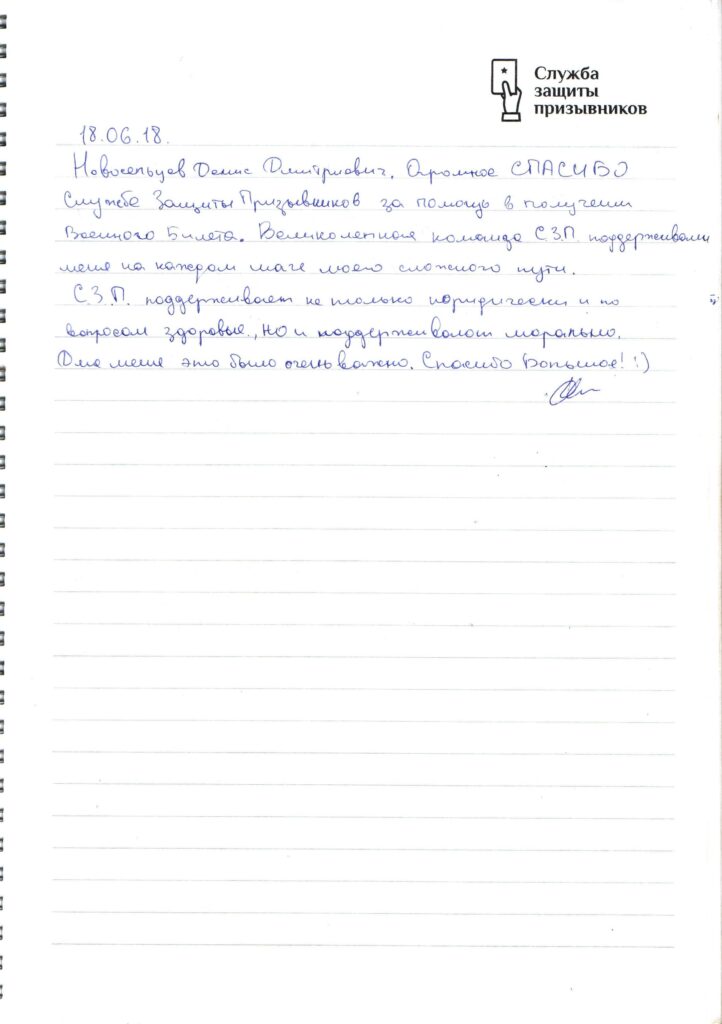 Служба
защиты
призывников
18.06.18.
Новосельцев Денис Дмитриевич. Огромное СПАСИБО
Службе Защиты Призывников за помощь в получении
Военного Билета. Великолепная команда С.З.П. поддерживали
меня на каждом шаге моего сложного пути.
С.З.П. поддерживает не только юридически и по
вопросам здоровья, но и поддерживают морально.
Для меня это было очень важно. Спасибо Большое! :)